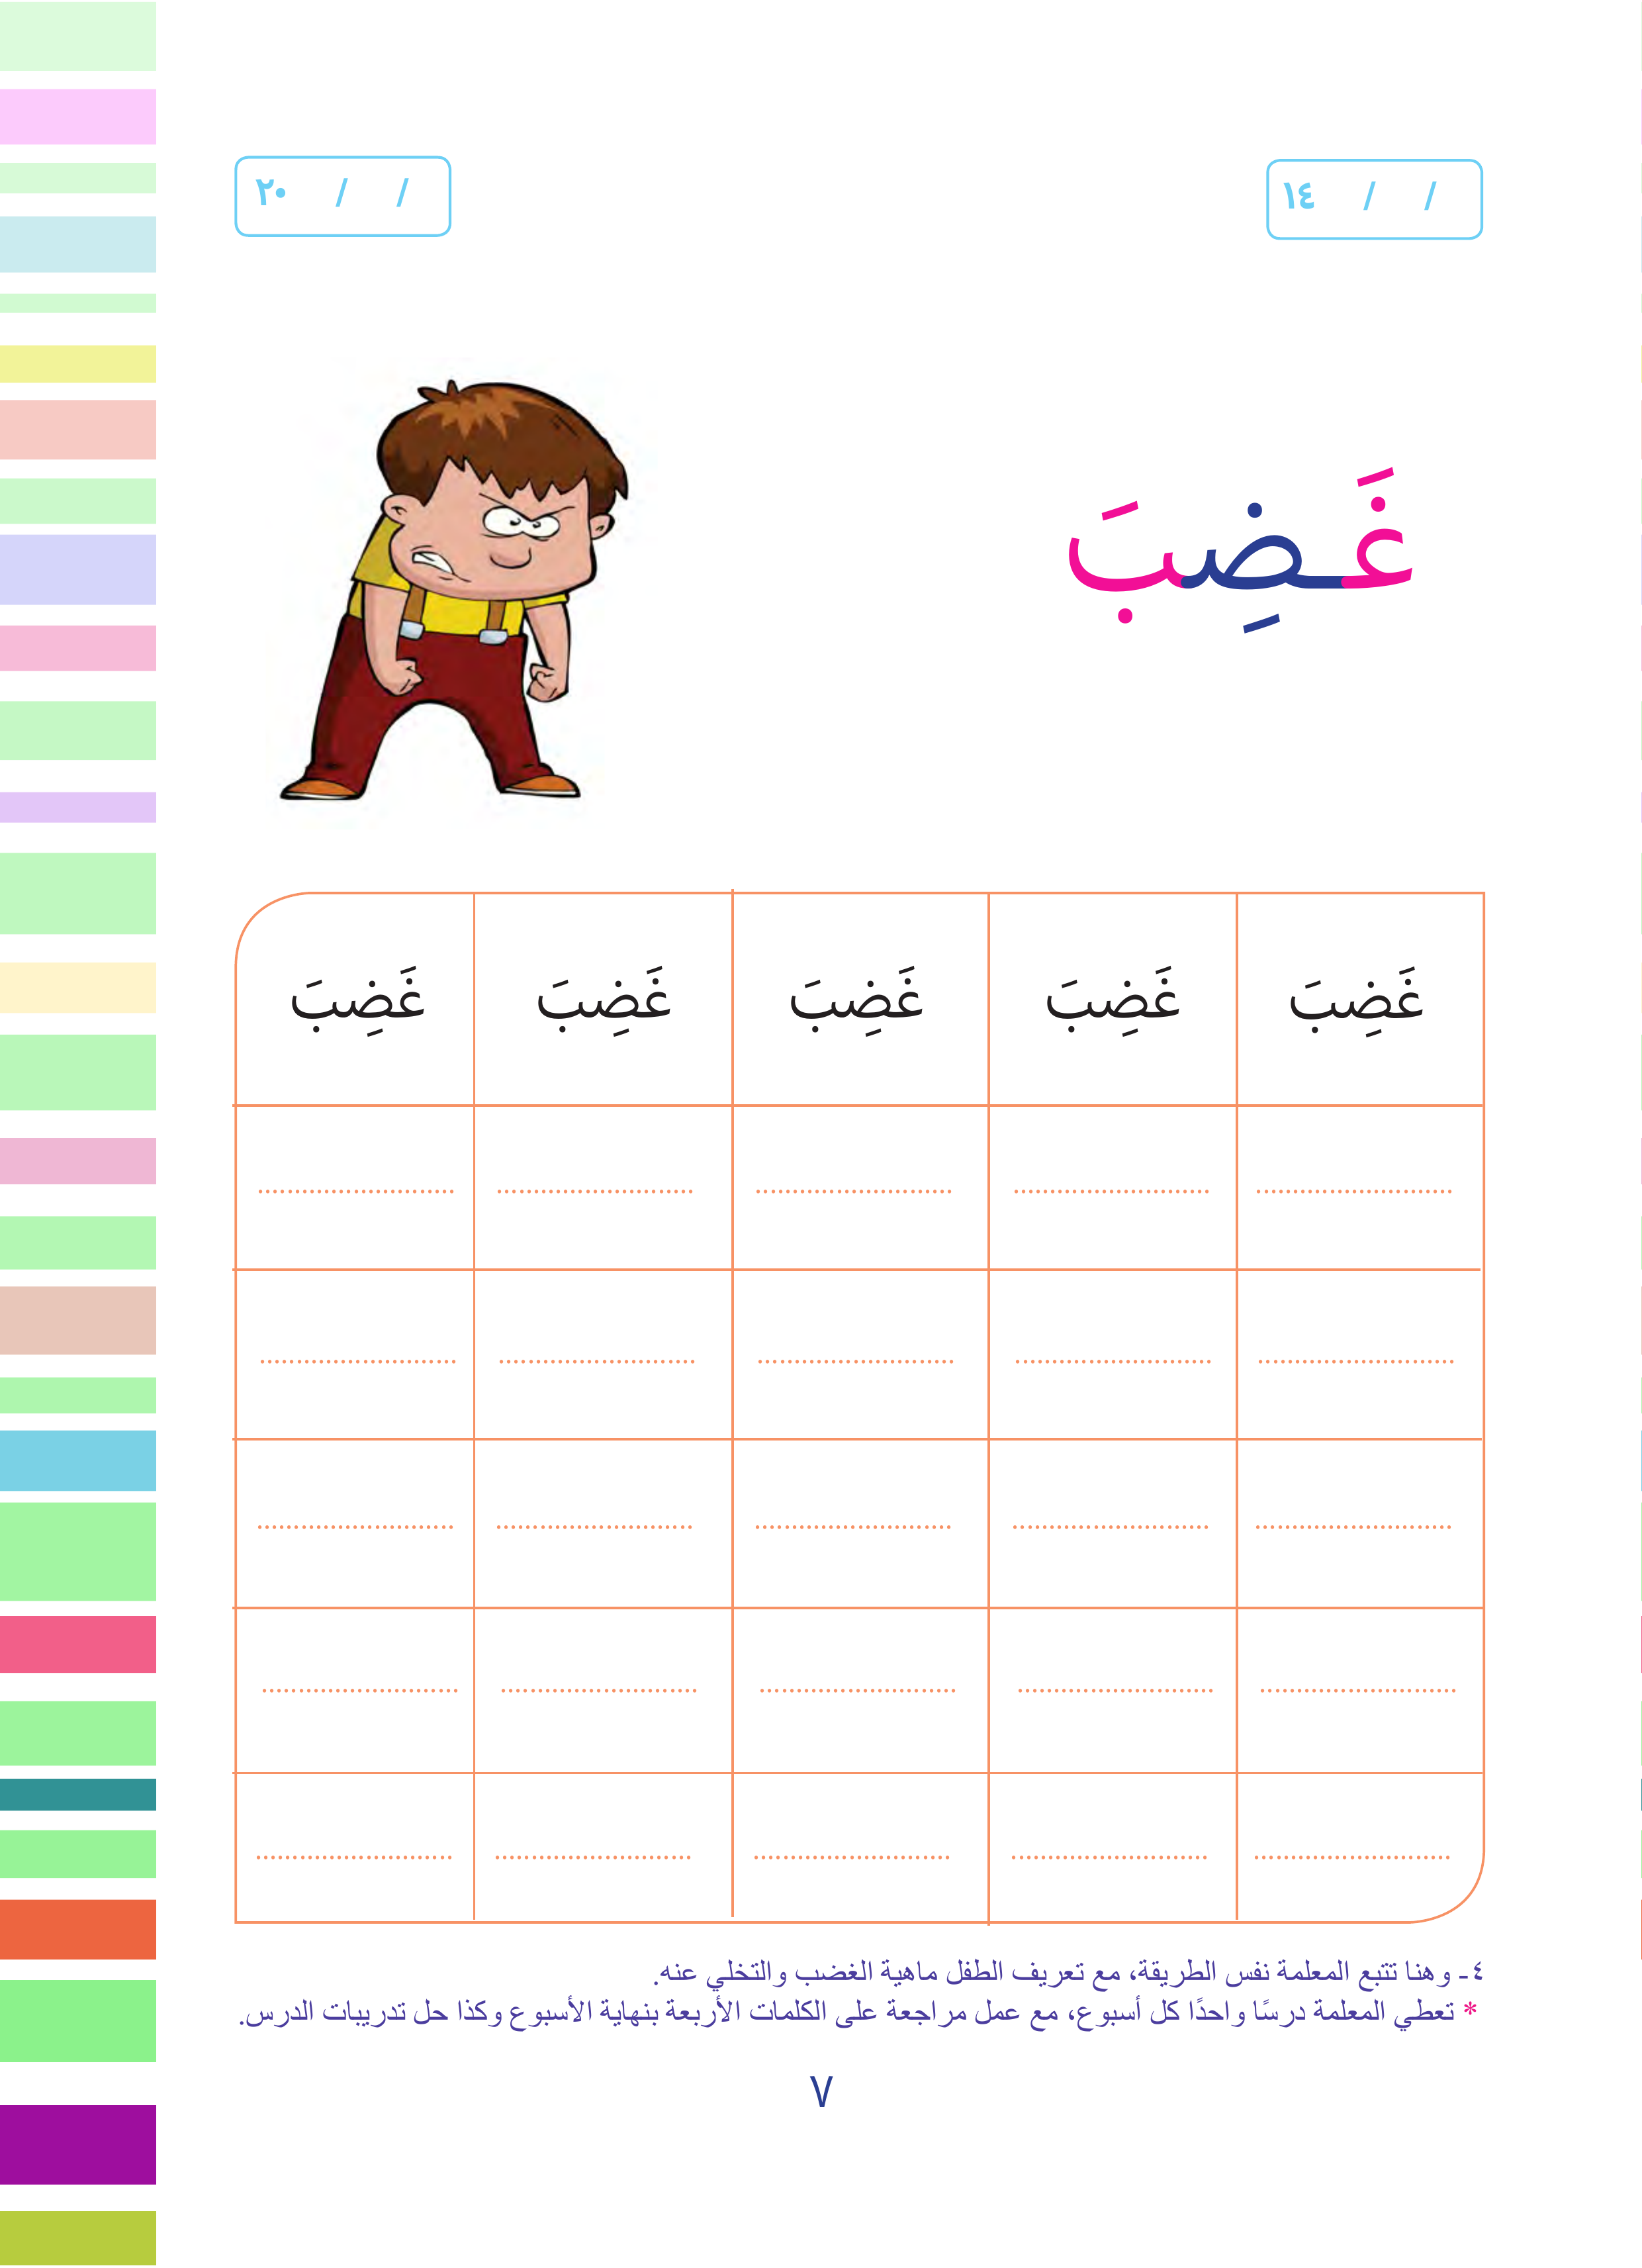 / / ١٤
/ / ٢٠
غَـضِبَ
غَضِبَ غَضِبَ غَضِبَ غَضِبَ غَضِبَ
٤- وهنا تتبع المعلمة نفس الطريقة، مع تعريف الطفل ماهية الغضب والتخلي عنه.
* تعطي المعلمة درسًا واحدًا كل أسبوع، مع عمل مراجعة على الكلمات الأربعة بنهاية الأسبوع وكذا حل تدريبات الدرس.
٧